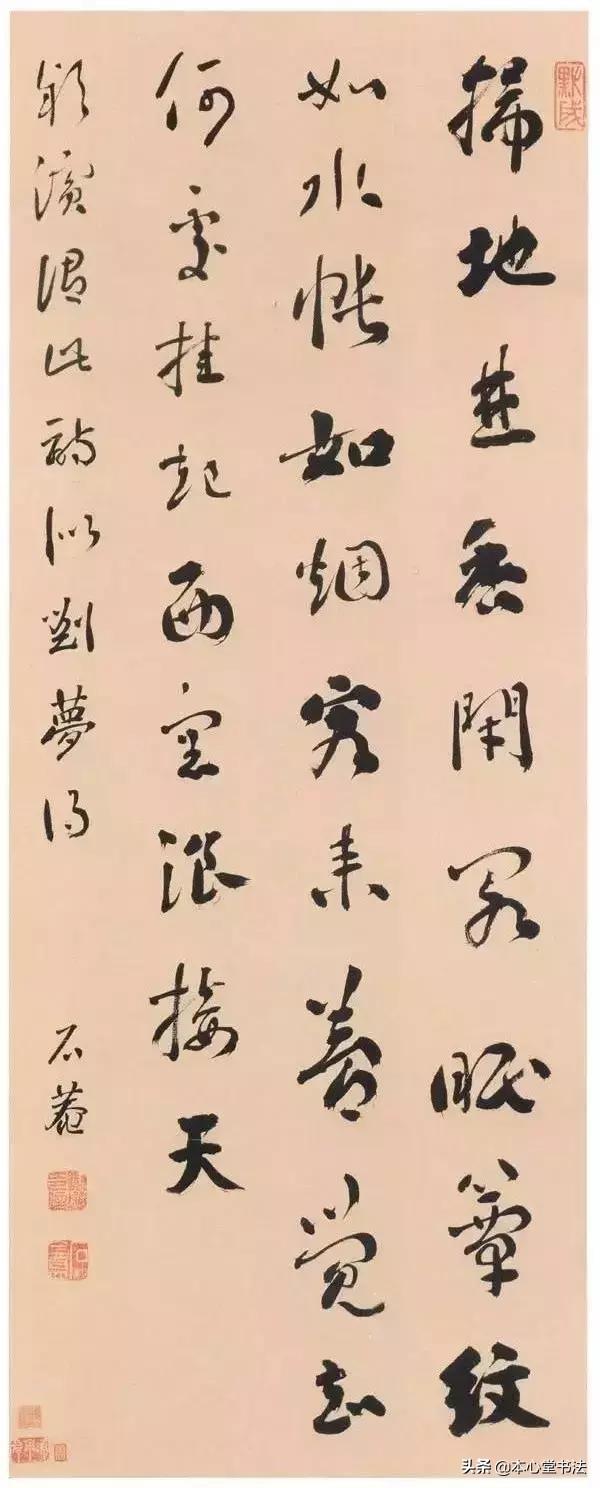 掃地焚香閉閣眠簟紋
如水帳如烟客来夢覺知
何處挂起西窓浪接天
潁濱謂此詩似劉夢得
石菴
头条 @本心堂书法